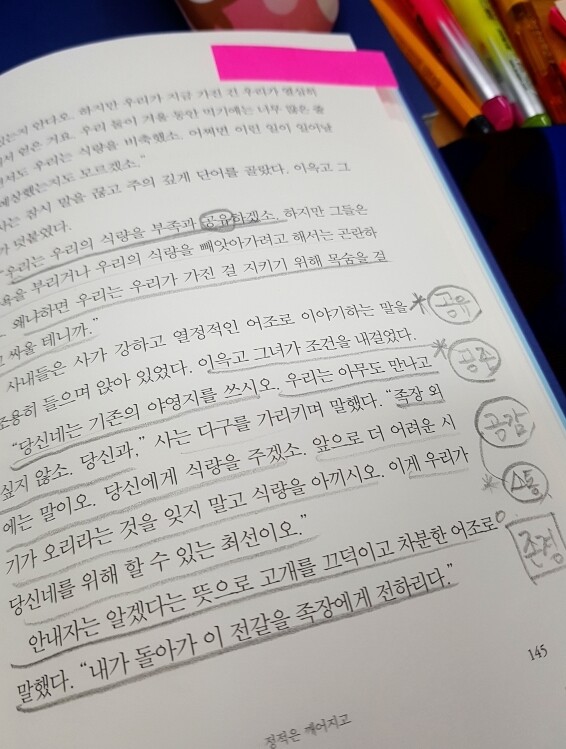 있는지 안다오. 하지만 우리가 지금 가진 건 우리가 열심히
얻은 거요. 우리 둘이 겨울 동안 먹기에는 너무 많은
우리는 식량을 비축했소. 어쩌면 이런 일이 일어날
예상했는지도 모르겠소."
사는 잠시 말을 끊고 주의 깊게 단어를 골랐다. 이윽고 그
가 덧붙였다.
"우리는 우리의 식량을 부족과 공유하겠소. 하지만 그들은
욕을 부리거나 우리의 식량을 빼앗아가려고 해서는 곤란하
왜냐하면 우리는 우리가 가진 걸 지키기 위해 목숨을 걸
고 싸울 테니까."
사내들은 사가 강하고 열정적인 어조로 이야기하는 말을 * 공유
조용히 들으며 앉아 있었다. 이윽고 그녀가 조건을 내걸었다. * 공존
"당신네는 기존의 야영지를 쓰시오. 우리는 아무도 만나고
싶지 않소. 당신과," 사는 다구를 가리키며 말했다. "족장 외 공감
에는 말이오. 당신에게 식량을 주겠소. 앞으로 더 어려운 시
기가 오리라는 것을 잊지 말고 식량을 아끼시오. 이게 우리가 * 소통
당신네를 위해 할 수 있는 최선이오."
안내자는 알겠다는 뜻으로 고개를 끄덕이고 차분한 어조로 존경
말했다. "내가 돌아가 이 전갈을 족장에게 전하리다."
145
정적은 깨어지고